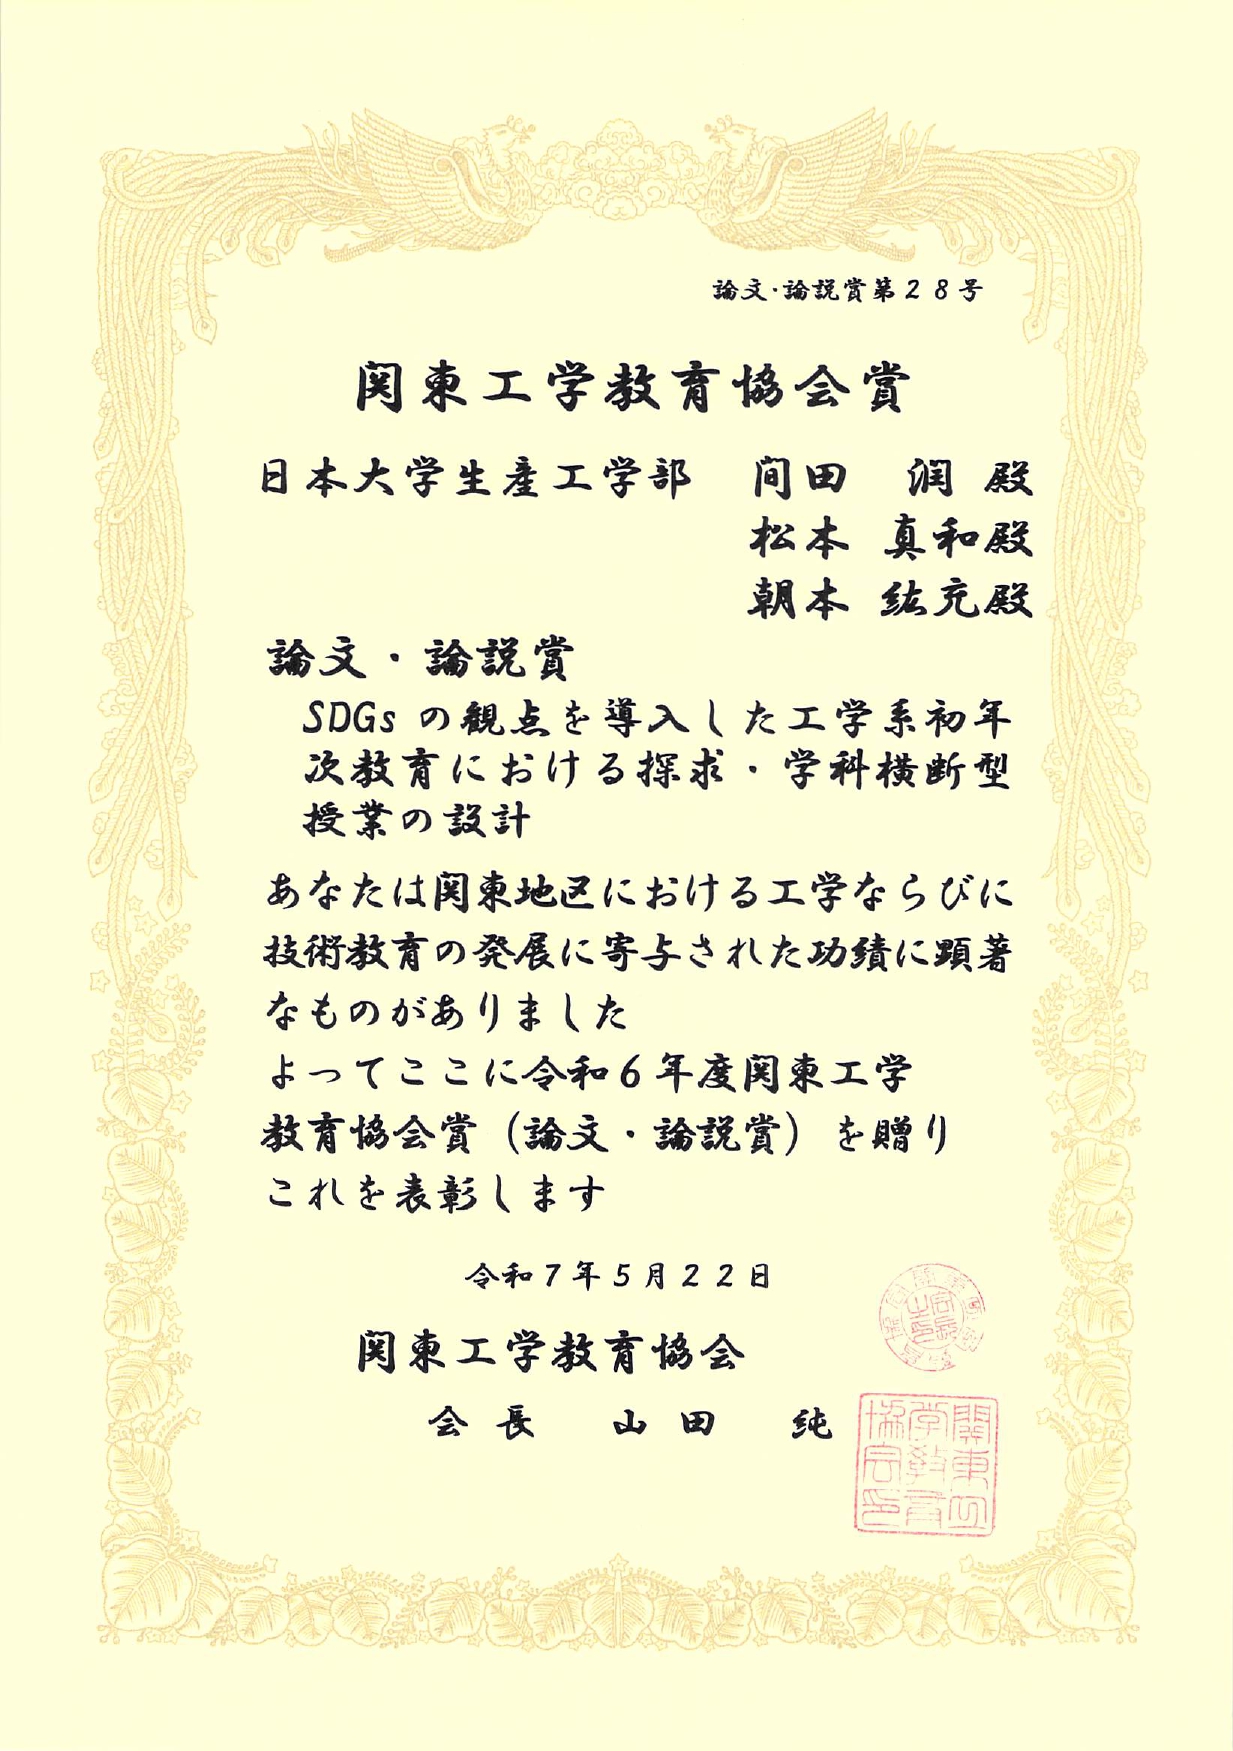 論文・論説賞第２８号
関東工学教育協会賞
日本大学生産工学部　間田　潤 殿
松本　真和殿
朝本　紘充殿
論文・論説賞
SDGs の観点を導入した工学系初年
次教育における探求・学科横断型
授業の設計
あなたは関東地区における工学ならびに
技術教育の発展に寄与された功績に顕著
なものがありました
よってここに令和６年度関東工学
教育協会賞（論文・論説賞）を贈り
これを表彰します
令和７年５月２２日
関東工学教育協会
会長　山田　純
關東工
学教育
協会印